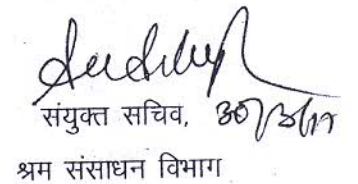 संयुक्त सचिव, 30/3/17
श्रम संसाधन विभाग